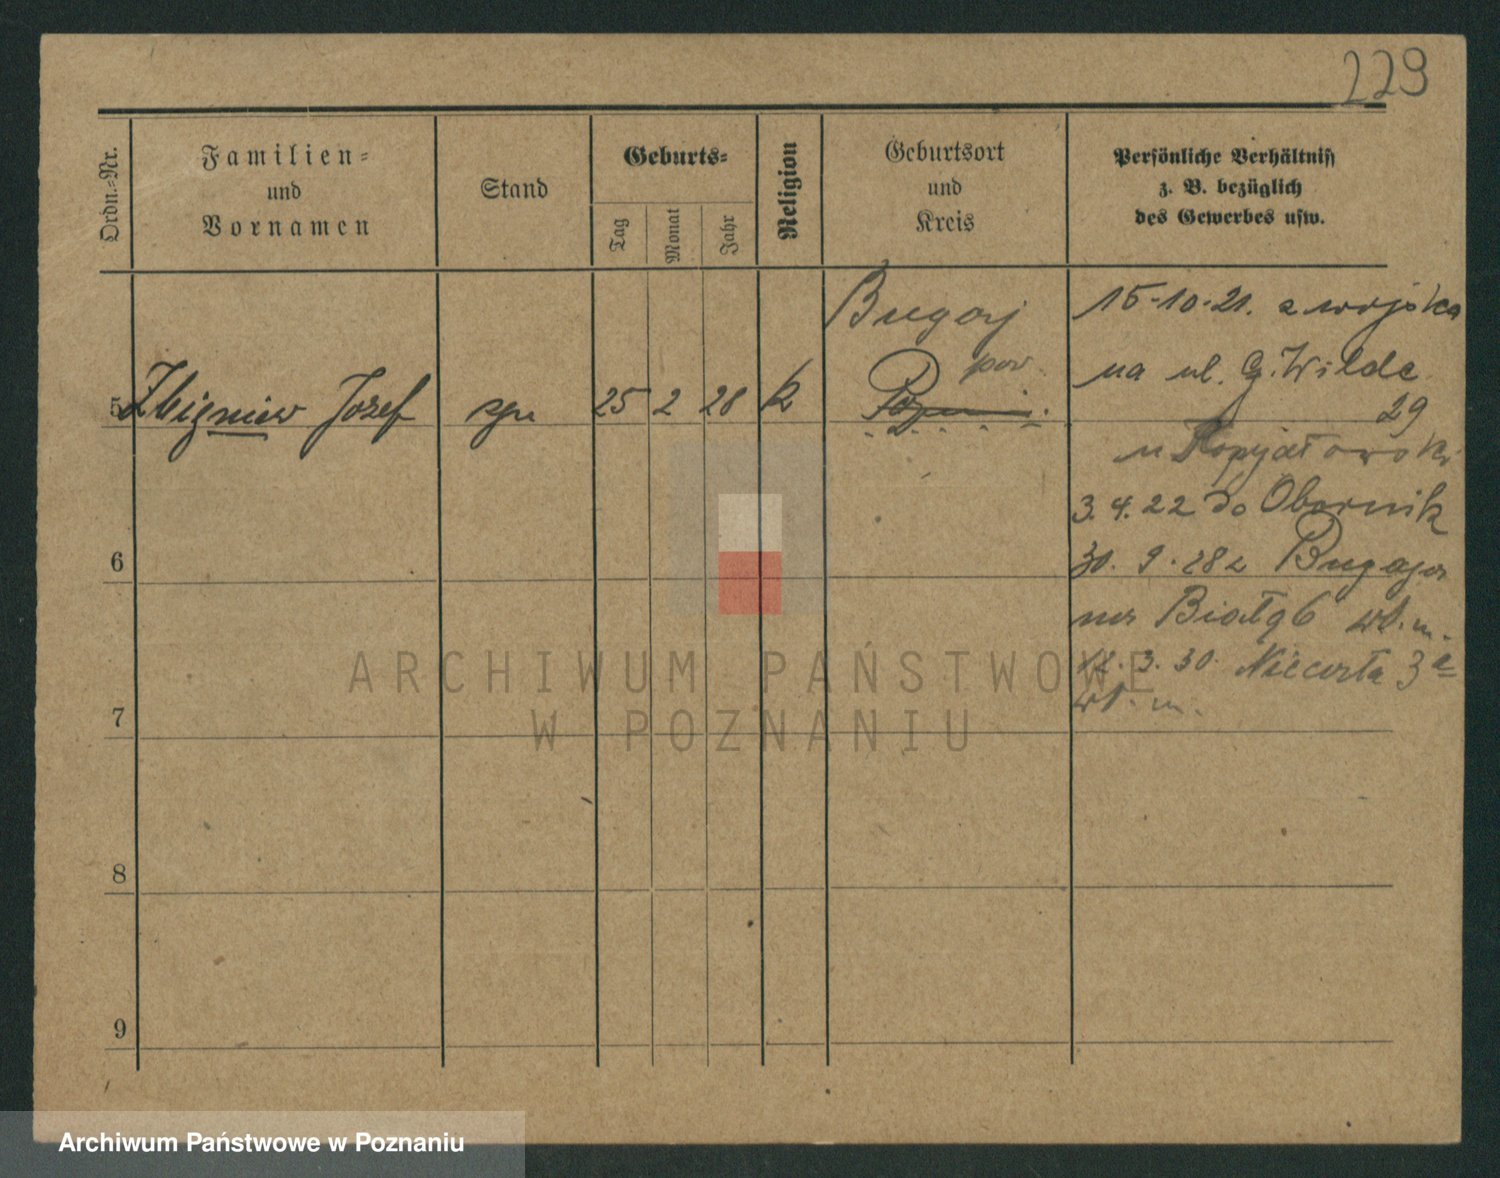 229
Ordn.-Nr.
Familien-
und
Vornamen
Stand
Geburts-
Tag
Monat
Jahr
Religion
Geburtsort
und
Kreis
Persönliche Verhältniss
z. B. bezüglich
des Gewerbes usw.
Bugaj
pow.
5 Zbigniew Józef syn 25 2 28 k
15-10-21. z wojska
na ul. G. Wilde
29
u Kopyłowski
3. 4. 22 do Obornik
30. 9. 28 z Bugaja
na 6 wł. m.
12. 3. 30. 3a
wł. m.
6
7
8
9
ARCHIWUM PAŃSTWOWE
W POZNANIU
Archiwum Państwowe w Poznaniu